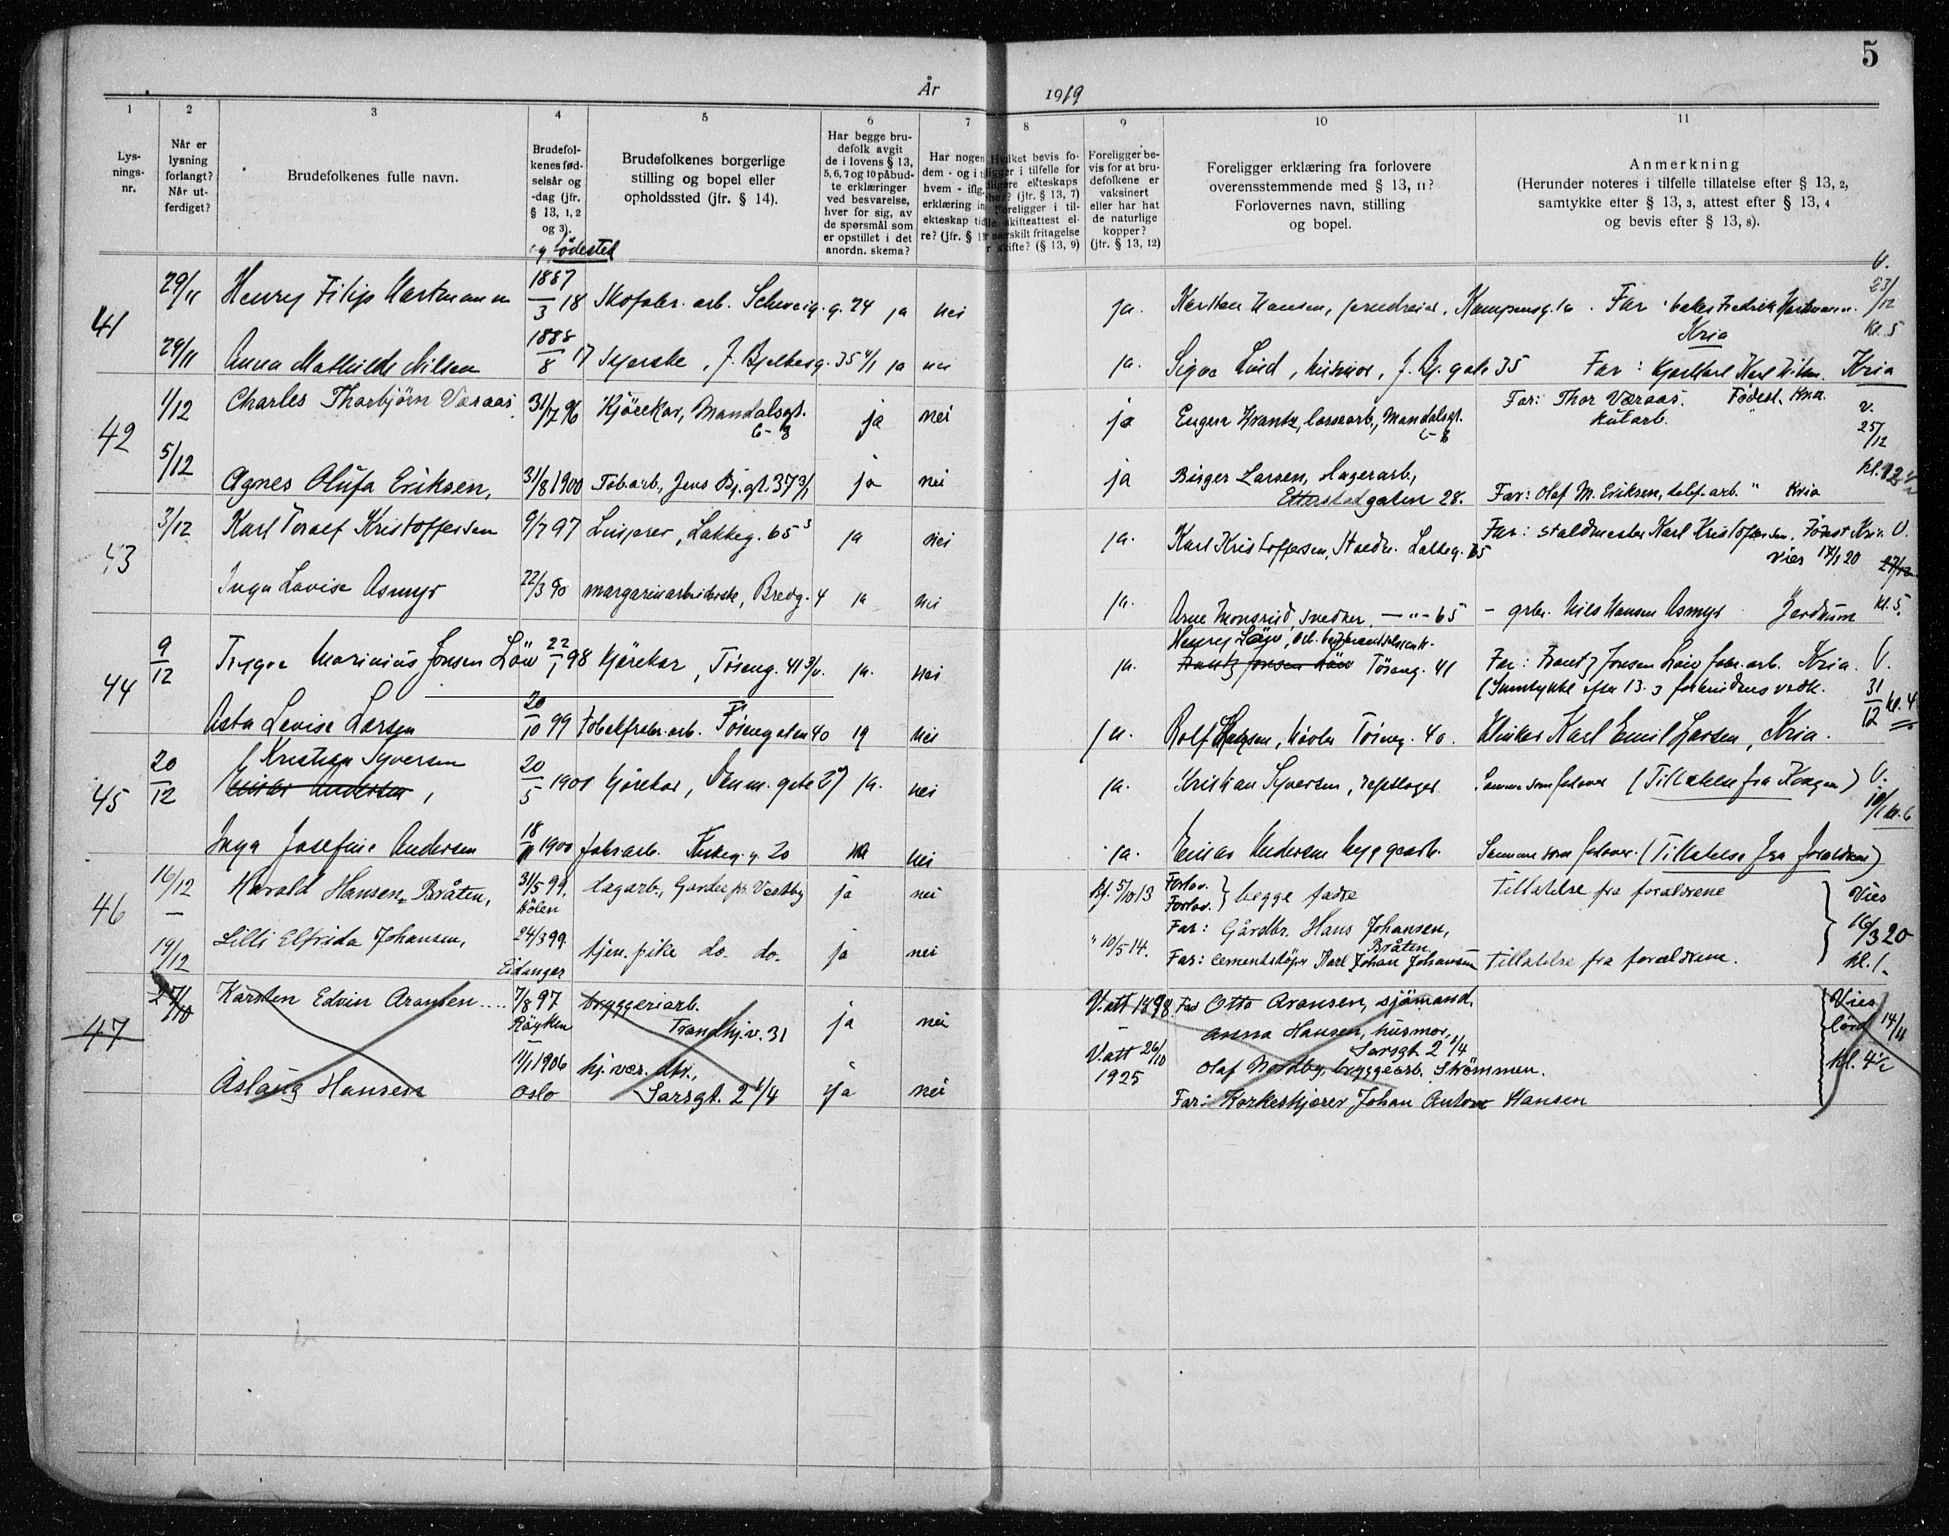 5
År 1919
1 2 3 4 5 6 7 8 9 10 11
Lys-
nings-
nr.
Når er
lysning
forlangt?
Når ut-
ferdiget?
Brudefolkenes fulle navn.
Brudefol-
kenes fød-
selsår og
-dag (jfr.
§ 13, 1, 2
og 3).
og fødested
Brudefolkenes borgerlige
stilling og bopel eller
opholdssted (jfr. § 14).
Har begge bru-
defolk avgit
de i lovens § 13,
5, 6, 7 og 10 påbud-
te erklæringer
ved besvarelse,
hver for sig, av
de spørsmål som
er opstillet i det
anordn. skema?
Har nogen
dem - og i
hvem - iflg.
erklæring in
ekteskap tid
re? (jfr. § 1
Hvilket bevis fo-
ligger i tilfelle for
ligere ekteskaps
(jfr. § 13, 7)
Foreligger i til-
le skifteattest el-
særskilt fritagelse
skifte? (§ 13, 9)
Foreligger be-
vis for at bru-
defolkene er
vaksinert
eller har hat
de naturlige
kopper?
(jfr. § 13, 12)
Foreligger erklæring fra forlovere
overensstemmende med § 13, 11?
Forlovernes navn, stilling
og bopel.
Anmerkning
(Herunder noteres i tilfelle tillatelse efter § 13, 2,
samtykke efter § 13, 3, attest efter § 13, 4
og bevis efter § 13, 8).
41 29/11 Henry Filip Hartmann 1887 3/18 Skofabr. arb. Schweig.g. 74 ja nei ja. Karsten Hansen, jerndreier, Kampensg. 16. Far: Fredrik Hartmann. V. 23/12 kl. 5
Kria
29/11 Anna Mathilde Nilsen 1888 8/17 Syerske, J. Bjelkesg. 35 4/1 ja nei ja. Signe Lind, husmor, J. Bj. gate 35 Far: Karl Vilh. Kria
42 1/12 Charles Thorbjörn Væraas 31/7 96 Kjørekar, Mandalsgt. 6-8 ja nei ja Eugen Krantz, lasearb., Mandalsgt. 6-8 Far: Thor Væraas. Fødest. Kria. V. 25/12
kularb.
5/12 Agnes Olufa Eriksen, 31/8 1900 Tob.arb., Jens Bj.gt. 37 3/1 ja nei ja Birger Larsen, lagerarb., kl. 12 1/2
Etterstadgaten 28. Far: Olaf M. Eriksen, telef. arb. " Kria
43 3/12 Karl Toralf Kristoffersen 9/7 97 Linjerer, Lakkeg. 65 3 ja nei ja. Karl Kristoffersen, Staldm. Lakkeg. 65 Far: Staldmester Karl Kristoffersen, Fødest. Kria. V.
Vies 17/1 20 27/12
Inga Lovise Asmyr 22/3 90 margarinarbeiderske, Bredg. 4 ja nei ja. Arne Monsrud, snedker, — " — 65 - grbr. Nils Hansen Asmyr Jevdum kl. 5.
44 9/12 Trygve Marinius Jonsen Löw 22/1 98 Kjørekar, Tøieng. 41 3/0. ja. nei ja. Henry Löw,
Frantz Jonsen Löw Tøieng. 41 Far: Frantz Jonsen Löw fabr. arb. Kria. V.
(Samtykke efter 13. 3 for brudens vedk. 31/12 kl. 4
Asta Lovise Larsen 20/10 99 tobakfabr. arb. Tøiengaten 40 ja nei ja. Rolf Hansen, Tøieng. 40. Karl Emil Larsen, Kria.
45 20/12 Kristian Syversen
Einar Andersen, 20/5 1900 Kjørekar, Danm. gate 27 ja. nei ja. Kristian Syversen, Samme som forlover (Tillatelse fra Kongen) V. 10/1 kl. 6
Inga Josefine Andersen 18/11 1900 fabr. arb. 20 ja nei ja. Einar Andersen byggearb. Samme som forlover. (Tillatelse fra forældrene)
46 16/12 Harald Hansen Bråten, 31/5 99. dagarb., Garder pr. Vestby ja nei Bf. 5/10 13 Forlov. } begge fædre Tillatelse fra forældrene Vies
Hölen Forlov.
19/12 Lilli Elfrida Johansen, 24/3 99. tjen. pike do. do. ja nei " 10/5 14. Far: Gårdbr. Hans Johansen, Bråten 16/3 20
Eidanger Far: Cementstöper Karl Johan Johansen Tillatelse fra forældrene. kl. 1.
47 27/10 Karsten Edvin Aronsen 7/8 97 bryggeriarb. ja nei V.att 1898 Far Otto Aronsen, sjömand. Vies
Röyken Trondhj.v. 31 Anna Hansen, husmor, lörd 14/11
Sarsgt. 2 1/4
11/1 1906 hj. vær. dtr., V.att 26/10 Olaf Nordby, byggearb. Strömmen. kl. 4 1/2
Aslaug Hansen Oslo Sarsgt. 2 1/4 ja nei 1925 Far: Korkeskjærer Johan Anton Hansen